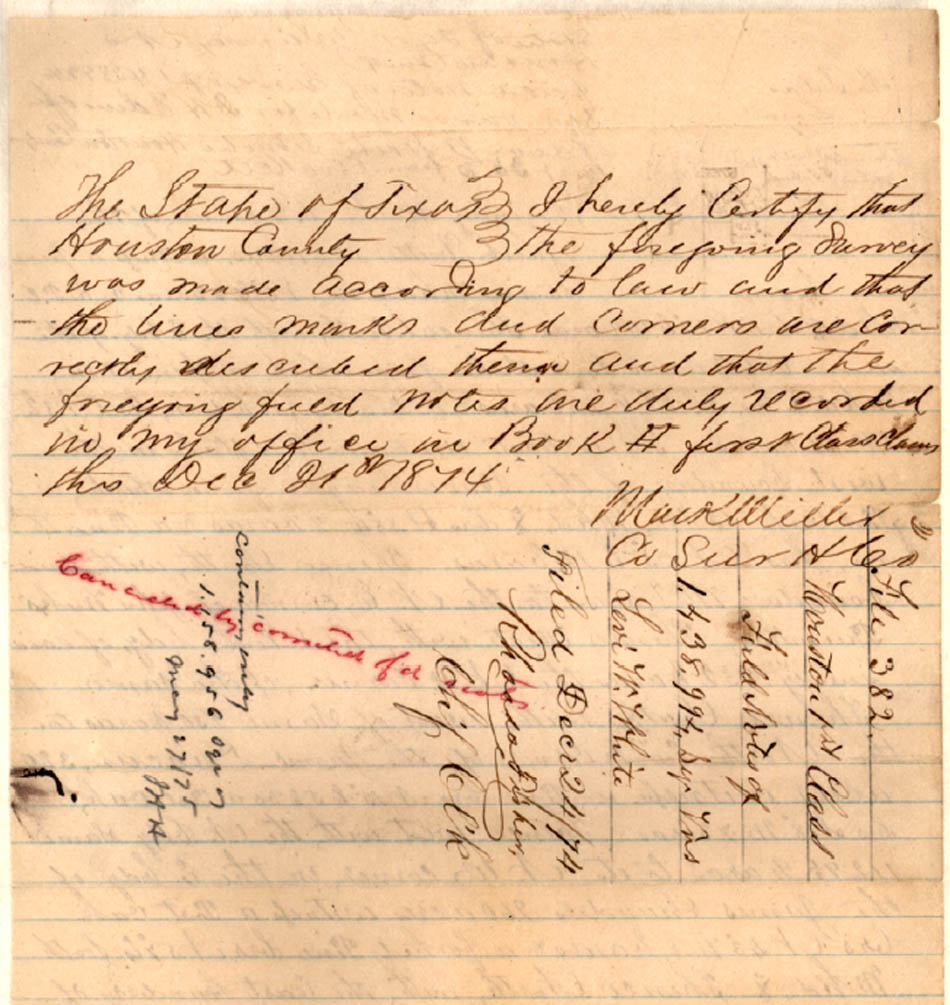 The State of Texas } I hereby Certify that
Houston County } the foregoing Survey
was made according to law and that
the lines marks and corners are cor
rectly described therein and that the
foregoing field notes are duly recorded
in my office in Book H first Class Claims
this Dec 21st 1874
Mark Miller
Co Sur H Co
File 382.
Houston 1st Class
Field Notes of
1.438.994 Sqr Vrs
Levi W. White
Filed Decr 24/74
Rhoads Fisher,
Chif Clk
Cancelled by corrected f'd notes
contains only
1.158.956 sqr v
May 27/75